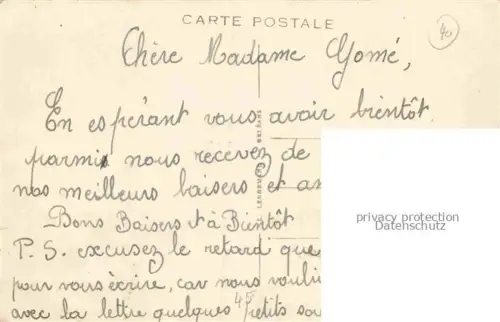 CARTE POSTALE
40
Chère Madame Gomé,
En espérant vous avoir bientôt
parmis nous recevez de
nos meilleurs baisers et am
Bons Baisers & à Bientôt
P.S. excusez le retard que
pour vous écrire, car nous voulio
avec la lettre quelques 45 petits sou
privacy protection
Datenschutz